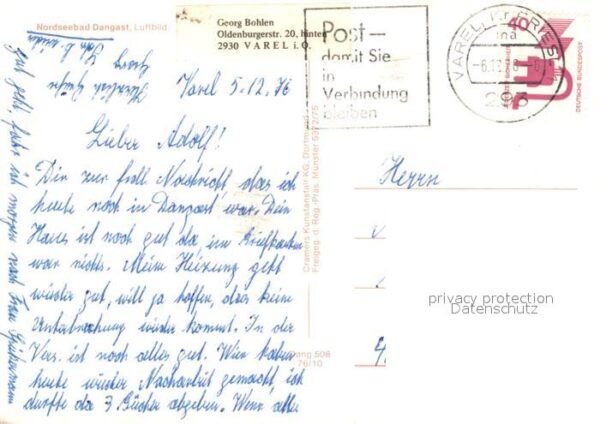 Nordseebad Dangast, Luftbild
Georg Bohlen
Oldenburgerstr. 20, hinten
2930 VAREL i.O.
Post-
damit Sie
in
Verbindung
bleiben
VAREL 1, KR FRIESL
ma
293
40
DEUTSCHE BUNDESPOST
Varel 5.12.76
Lieber Adolf!
Dir zur frdl. Nachricht das ich
heute noch in Dangast war. Dein
Haus ist noch gut da, im Briefkasten
war nichts. Meine Heizung geht
wieder gut, will ja hoffen, das keine
Unterbrechung wieder kommt. In der
Ver. ist noch alles gut. Wir haben
heute wieder Nacharbeit gemacht, ich
durfte da 3 Bücher abgeben. Wenn alles
gut geht, fahre ich morgen nach Frau
Herzlich Grüße
Georg
Cramers Kunstanstalt KG, Dortmund
Freigeg. d. Reg.-Präs. Münster 5372/75
508
76/10
Herrn
privacy protection
Datenschutz